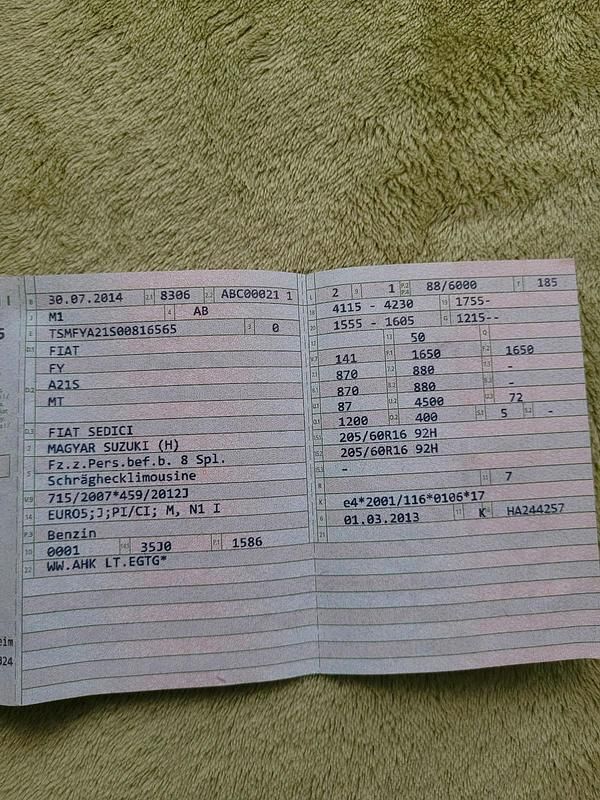 B 30.07.2014 2.1 8306 2.2 ABC00021 1
J M1 4 AB
E TSMFYA21S00816565 3 0
D.1 FIAT
FY
D.2 A21S
MT
D.3 FIAT SEDICI
2 MAGYAR SUZUKI (H)
5 Fz.z.Pers.bef.b. 8 Spl.
Schräghecklimousine
V.9 715/2007*459/2012J
14 EURO5;J;PI/CI; M, N1 I
P.3 Benzin
10 0001 14.1 35J0 P.1 1586
22 WW.AHK LT.EGTG*
L 2 9 1 P.2 P.4 88/6000 T 185
18 4115 - 4230 19 1755-
20 1555 - 1605 G 1215--
13 50 Q
V.7 141 F.1 1650 F.2 1650
7.1 870 7.2 880 7.3 -
8.1 870 8.2 880 8.3 -
U.1 87 U.2 4500 U.3 72
O.1 1200 O.2 400 S.1 5 S.2 -
15.1 205/60R16 92H
15.2 205/60R16 92H
15.3 -
R 11 7
K e4*2001/116*0106*17
6 01.03.2013 17 K 16 HA244257
21
eim
024